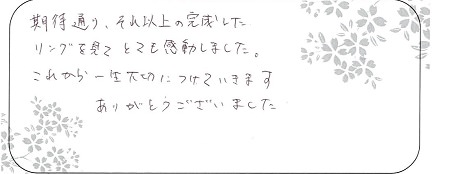 期待通り、それ以上の完成した
リングを見てとても感動しました。
これから一生大切につけていきます
ありがとうございました